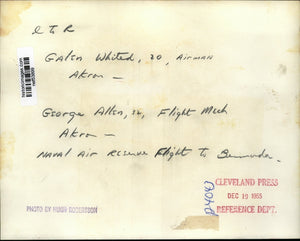 L to R
Galen Whited, 20, Airman
Akron —
George Allen, 32, Flight Mech
Akron —
Naval Air Reserve Flight to Bermuda.
PHOTO BY HUGH ROBERTSON
CLEVELAND PRESS
DEC 19 1955
REFERENCE DEPT.